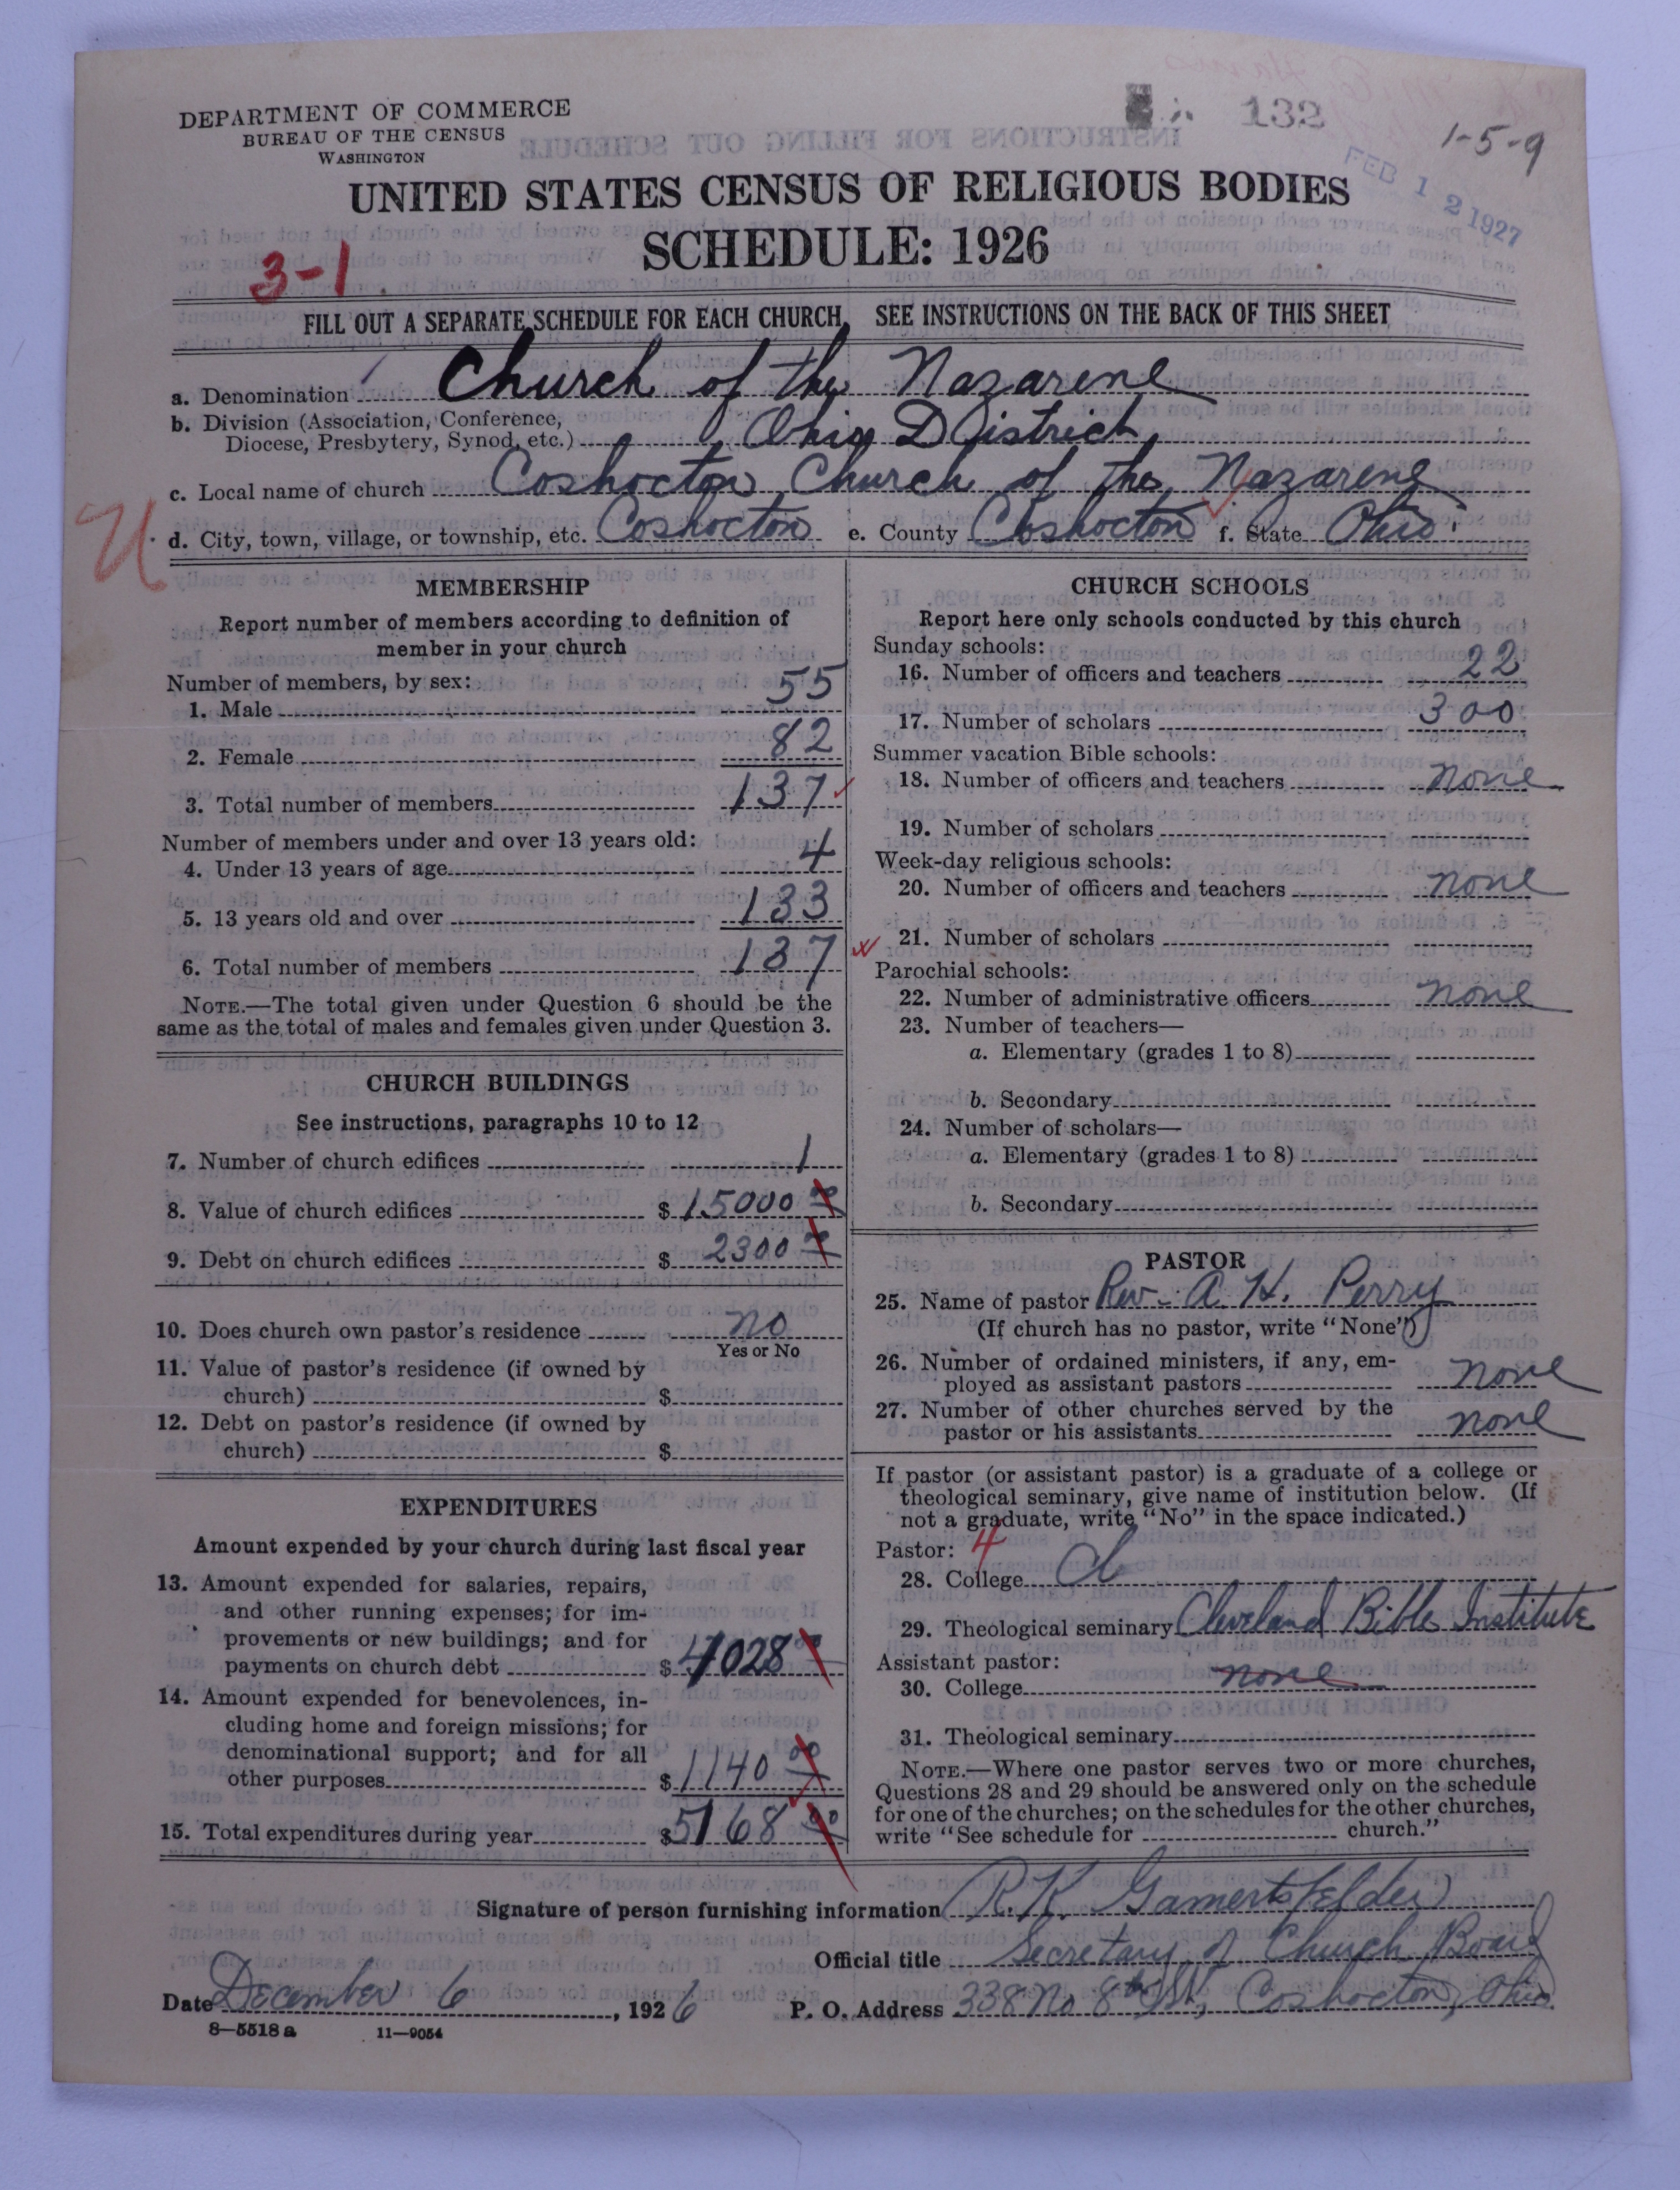 DEPARTMENT OF COMMERCE
BUREAU OF THE CENSUS
WASHINGTON
132
1-5-9
FEB 12 1927
UNITED STATES CENSUS OF RELIGIOUS BODIES
SCHEDULE: 1926
3-1
FILL OUT A SEPARATE SCHEDULE FOR EACH CHURCH. SEE INSTRUCTIONS ON THE BACK OF THIS SHEET
a. Denomination Church of the Nazarene
b. Division (Association, Conference,
Diocese, Presbytery, Synod, etc.) Ohio District
c. Local name of church Coshocton Church of the Nazarene
U
d. City, town, village, or township, etc. Coshocton e. County Coshocton f. State Ohio
MEMBERSHIP
Report number of members according to definition of
member in your church
Number of members, by sex:
1. Male 55
2. Female 82
3. Total number of members 137
Number of members under and over 13 years old:
4. Under 13 years of age 4
5. 13 years old and over 133
6. Total number of members 137
NOTE.—The total given under Question 6 should be the
same as the total of males and females given under Question 3.
CHURCH BUILDINGS
See instructions, paragraphs 10 to 12
7. Number of church edifices 1
8. Value of church edifices $ 15000 00
9. Debt on church edifices $ 2300 00
10. Does church own pastor's residence no
Yes or No
11. Value of pastor's residence (if owned by
church) $
12. Debt on pastor's residence (if owned by
church) $
EXPENDITURES
Amount expended by your church during last fiscal year
13. Amount expended for salaries, repairs,
and other running expenses; for im-
provements or new buildings; and for
payments on church debt $ 4028 00
14. Amount expended for benevolences, in-
cluding home and foreign missions; for
denominational support; and for all
other purposes $ 1140 00
15. Total expenditures during year $ 5168 00
CHURCH SCHOOLS
Report here only schools conducted by this church
Sunday schools:
16. Number of officers and teachers 22
17. Number of scholars 300
Summer vacation Bible schools:
18. Number of officers and teachers none
19. Number of scholars
Week-day religious schools:
20. Number of officers and teachers none
21. Number of scholars
Parochial schools:
22. Number of administrative officers none
23. Number of teachers—
a. Elementary (grades 1 to 8)
b. Secondary
24. Number of scholars—
a. Elementary (grades 1 to 8)
b. Secondary
PASTOR
25. Name of pastor Rev. A. H. Perry
(If church has no pastor, write "None")
26. Number of ordained ministers, if any, em-
ployed as assistant pastors none
27. Number of other churches served by the
pastor or his assistants none
If pastor (or assistant pastor) is a graduate of a college or
theological seminary, give name of institution below. (If
not a graduate, write "No" in the space indicated.)
Pastor: 4
28. College Cl
29. Theological seminary Cleveland Bible Institute
Assistant pastor:
30. College none
31. Theological seminary
NOTE.—Where one pastor serves two or more churches,
Questions 28 and 29 should be answered only on the schedule
for one of the churches; on the schedules for the other churches,
write "See schedule for church."
Signature of person furnishing information R. K. Gamertsfelder
Official title Secretary of Church Board
Date December 6, 1926 P. O. Address 338 No 8th St, Coshocton, Ohio
8—5518 a 11—9054